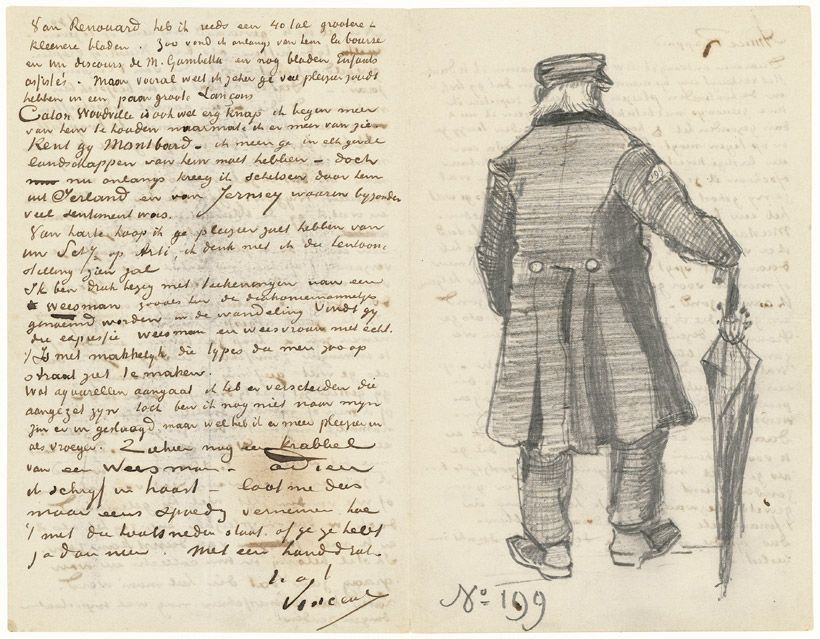 Van Renouard heb ik reeds een 40 tal grootere &
kleinere bladen. Zoo vond ik onlangs van hem la bourse
en un discours de M. Gambetta en nog bladen Enfants
assistés. Maar vooral weet ik zeker ge veel pleizier zoudt
hebben in een paar groote Lançons
Caton Woodville is ook wel erg knap ik begin meer
van hem te houden naarmate ik er meer van zie
Kent gij Montbard – ik meen ge in elk geval
landschappen van hem moet hebben – doch
nu onlangs kreeg ik schetsen door hem
uit Ierland en van Jersey waarin bijzonder
veel sentiment was.
Van harte hoop ik ge pleizier zult hebben van
uw op Arti, ik denk niet ik die tentoon-
stelling zien zal
Ik ben druk bezig met teekeningen van een
weesman zooals hier de diakoniemannetjes
genoemd worden in de wandeling Vindt gij
die expressie weesman en weesvrouw niet echt.
't Is niet makkelijk die types die men zoo op
straat ziet te maken.
Wat aquarellen aangaat ik heb er verscheiden die
aangezet zijn toch ben ik nog niet naar mijn
zin er in geslaagd maar wel heb ik er meer pleizier in
als vroeger. Ziehier nog een krabbel
van een weesman. adieu
ik schrijf in haast – laat me dus
maar eens spoedig vernemen hoe
't met die houtsneden staat. of ge ze hebt
ja dan neen. Met een handdruk.
t. à t.
Vincent
No 199